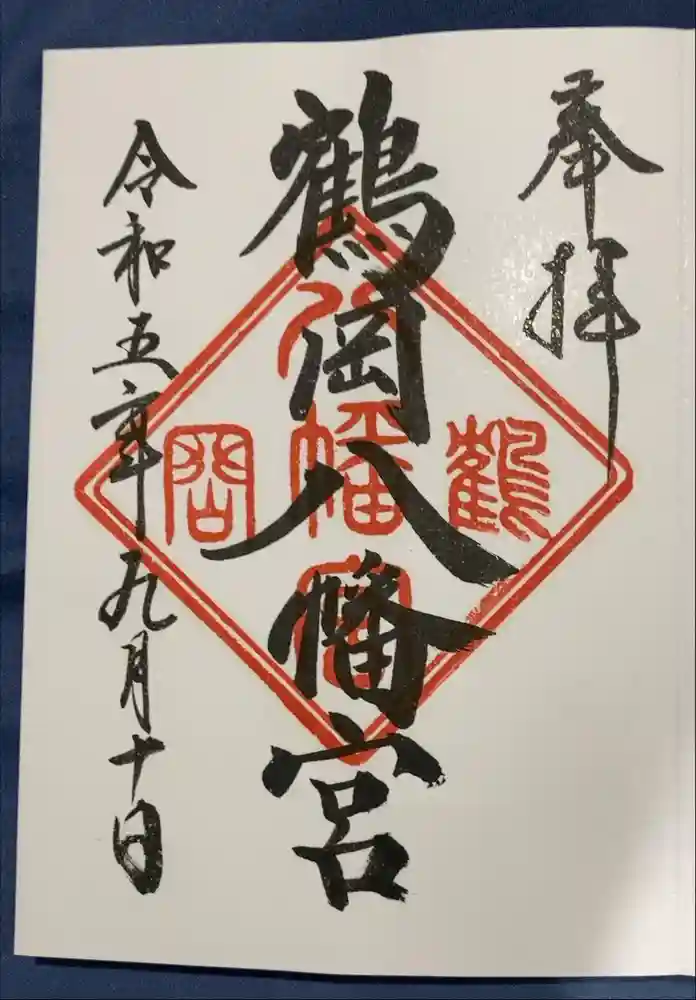 奉拝
鶴岡八幡宮
鶴
八幡宮
岡
令和五年九月十日